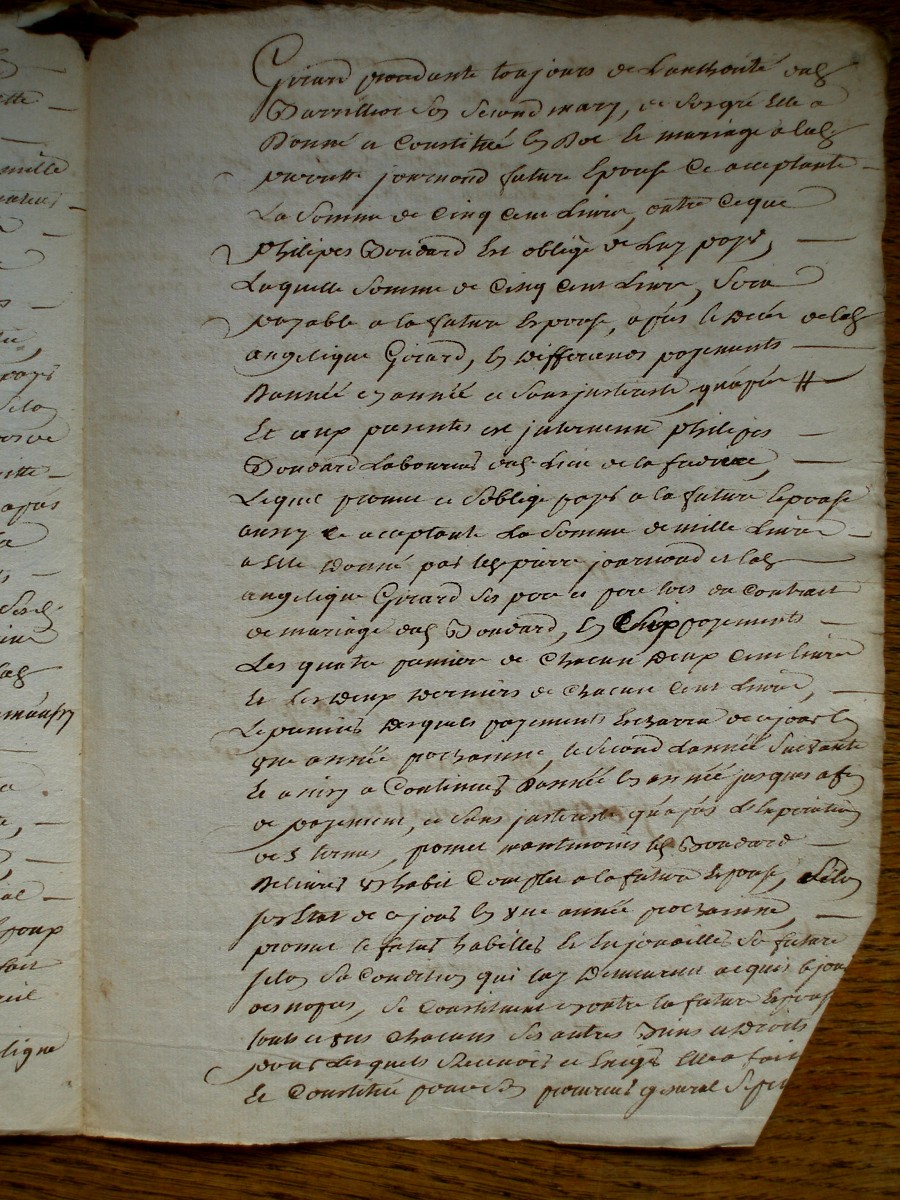 Girard procedante toujours de Lauthorité dud
Barrillot son second mary, de son gré Elle a
Donné et Constitué En Dot Et mariage a lad
pierrette journoud future Epouse Ce acceptante
La Somme de Cinq Cent Livres, outre Ce que
philipes Doudard Est obligé de Luy payer,
Laquelle Somme de Cinq Cent Livres, Sera
payable a la future Epouse, après le Décès de lad
angelique Girard, En Differends payements
D'année En année et Sans jnterests qu'après //
Et aux presentes est jntervenu philipes
Doudard Laboureur dud Lieu de la
Lequel promet et S'oblige payer a la future Epouse
aussy Ce acceptante La Somme de mille Livres
a Elle Donné par led pierre journoud et lad
angelique Girard Ses pere et mere lors du Contrait
de mariage dud Doudard, En Six payements
Les quatre premiers de Chacun Deux Cent Livres
Et Les Deux Derniers de Chacun Cent Livres,
Le premier Desquels payements Echerra de ce jour En
une année prochaine, le Second L'année Suivante
Et ainsy a Continuer D'année En année jusques a fin
de payement, et Sans jnterests qu'après L'Expiration
des termes, promet neantmoins led Doudard
Delivrer un habit Complet a la future Epouse, Selon
son Etat de ce jour En une année prochaine,
promet le futur habiller Et Enjouailler Sa future
Selon Sa Condition qui luy Demeureront acquis le jour
des nopces, Se Constituent En outre la future Epouse
touts et uns Chacuns Ses autres Biens et Droits
pour Lesquels Recevoir et Exiger Elle a fait
Et Constitué pour Son procureur general